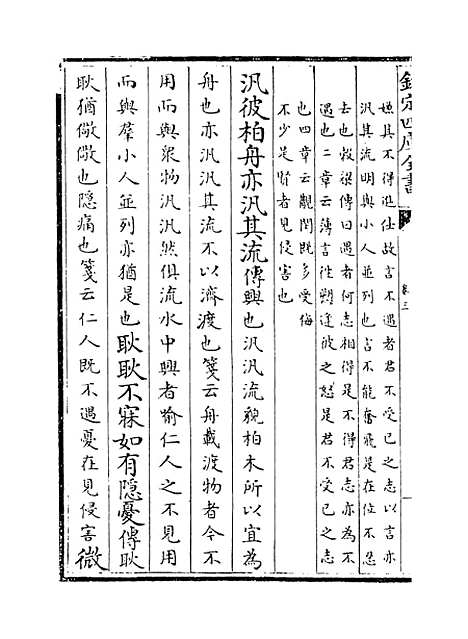 欽定四庫全書
卷三
嫌其不得進仕故言不遇者君不受己之志以言亦
汎其流明與小人並列也言不能奮飛是在位不忍
去也穀梁傳曰遇者何志相得是不得君志亦為不
遇也二章云薄言往愬逢彼之怒是君不受己之志
也四章云覯閔既多受侮
不少是賢者見侵害也
汎彼柏舟亦汎其流傳興也汎汎流貌柏木所以宜為
舟也亦汎汎其流不以濟渡也箋云舟載渡物者今不
用而與衆物汎汎然俱流水中興者喻仁人之不見用
而與羣小人並列亦猶是也耿耿不寐如有隱憂傳耿
耿猶儆儆也隱痛也箋云仁人既不遇憂在見侵害微